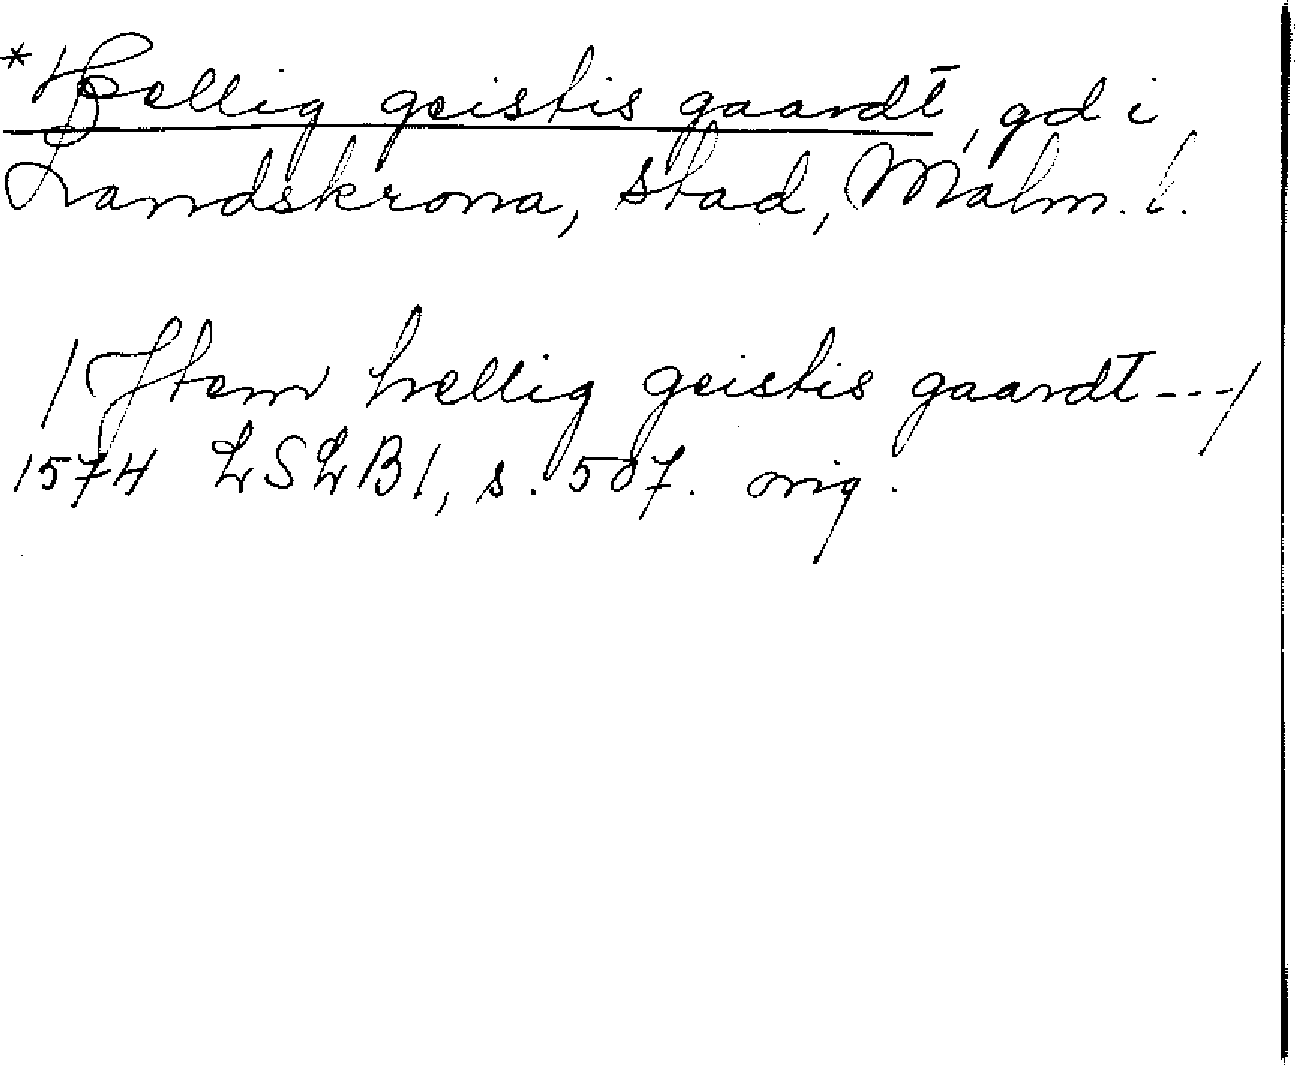 *Hellig geistis gaardt, gd i
Landskrona, stad, Malm. l.
/Jtem hellig geistis gaardt---/
1574 LSLB1, s. 507. orig.